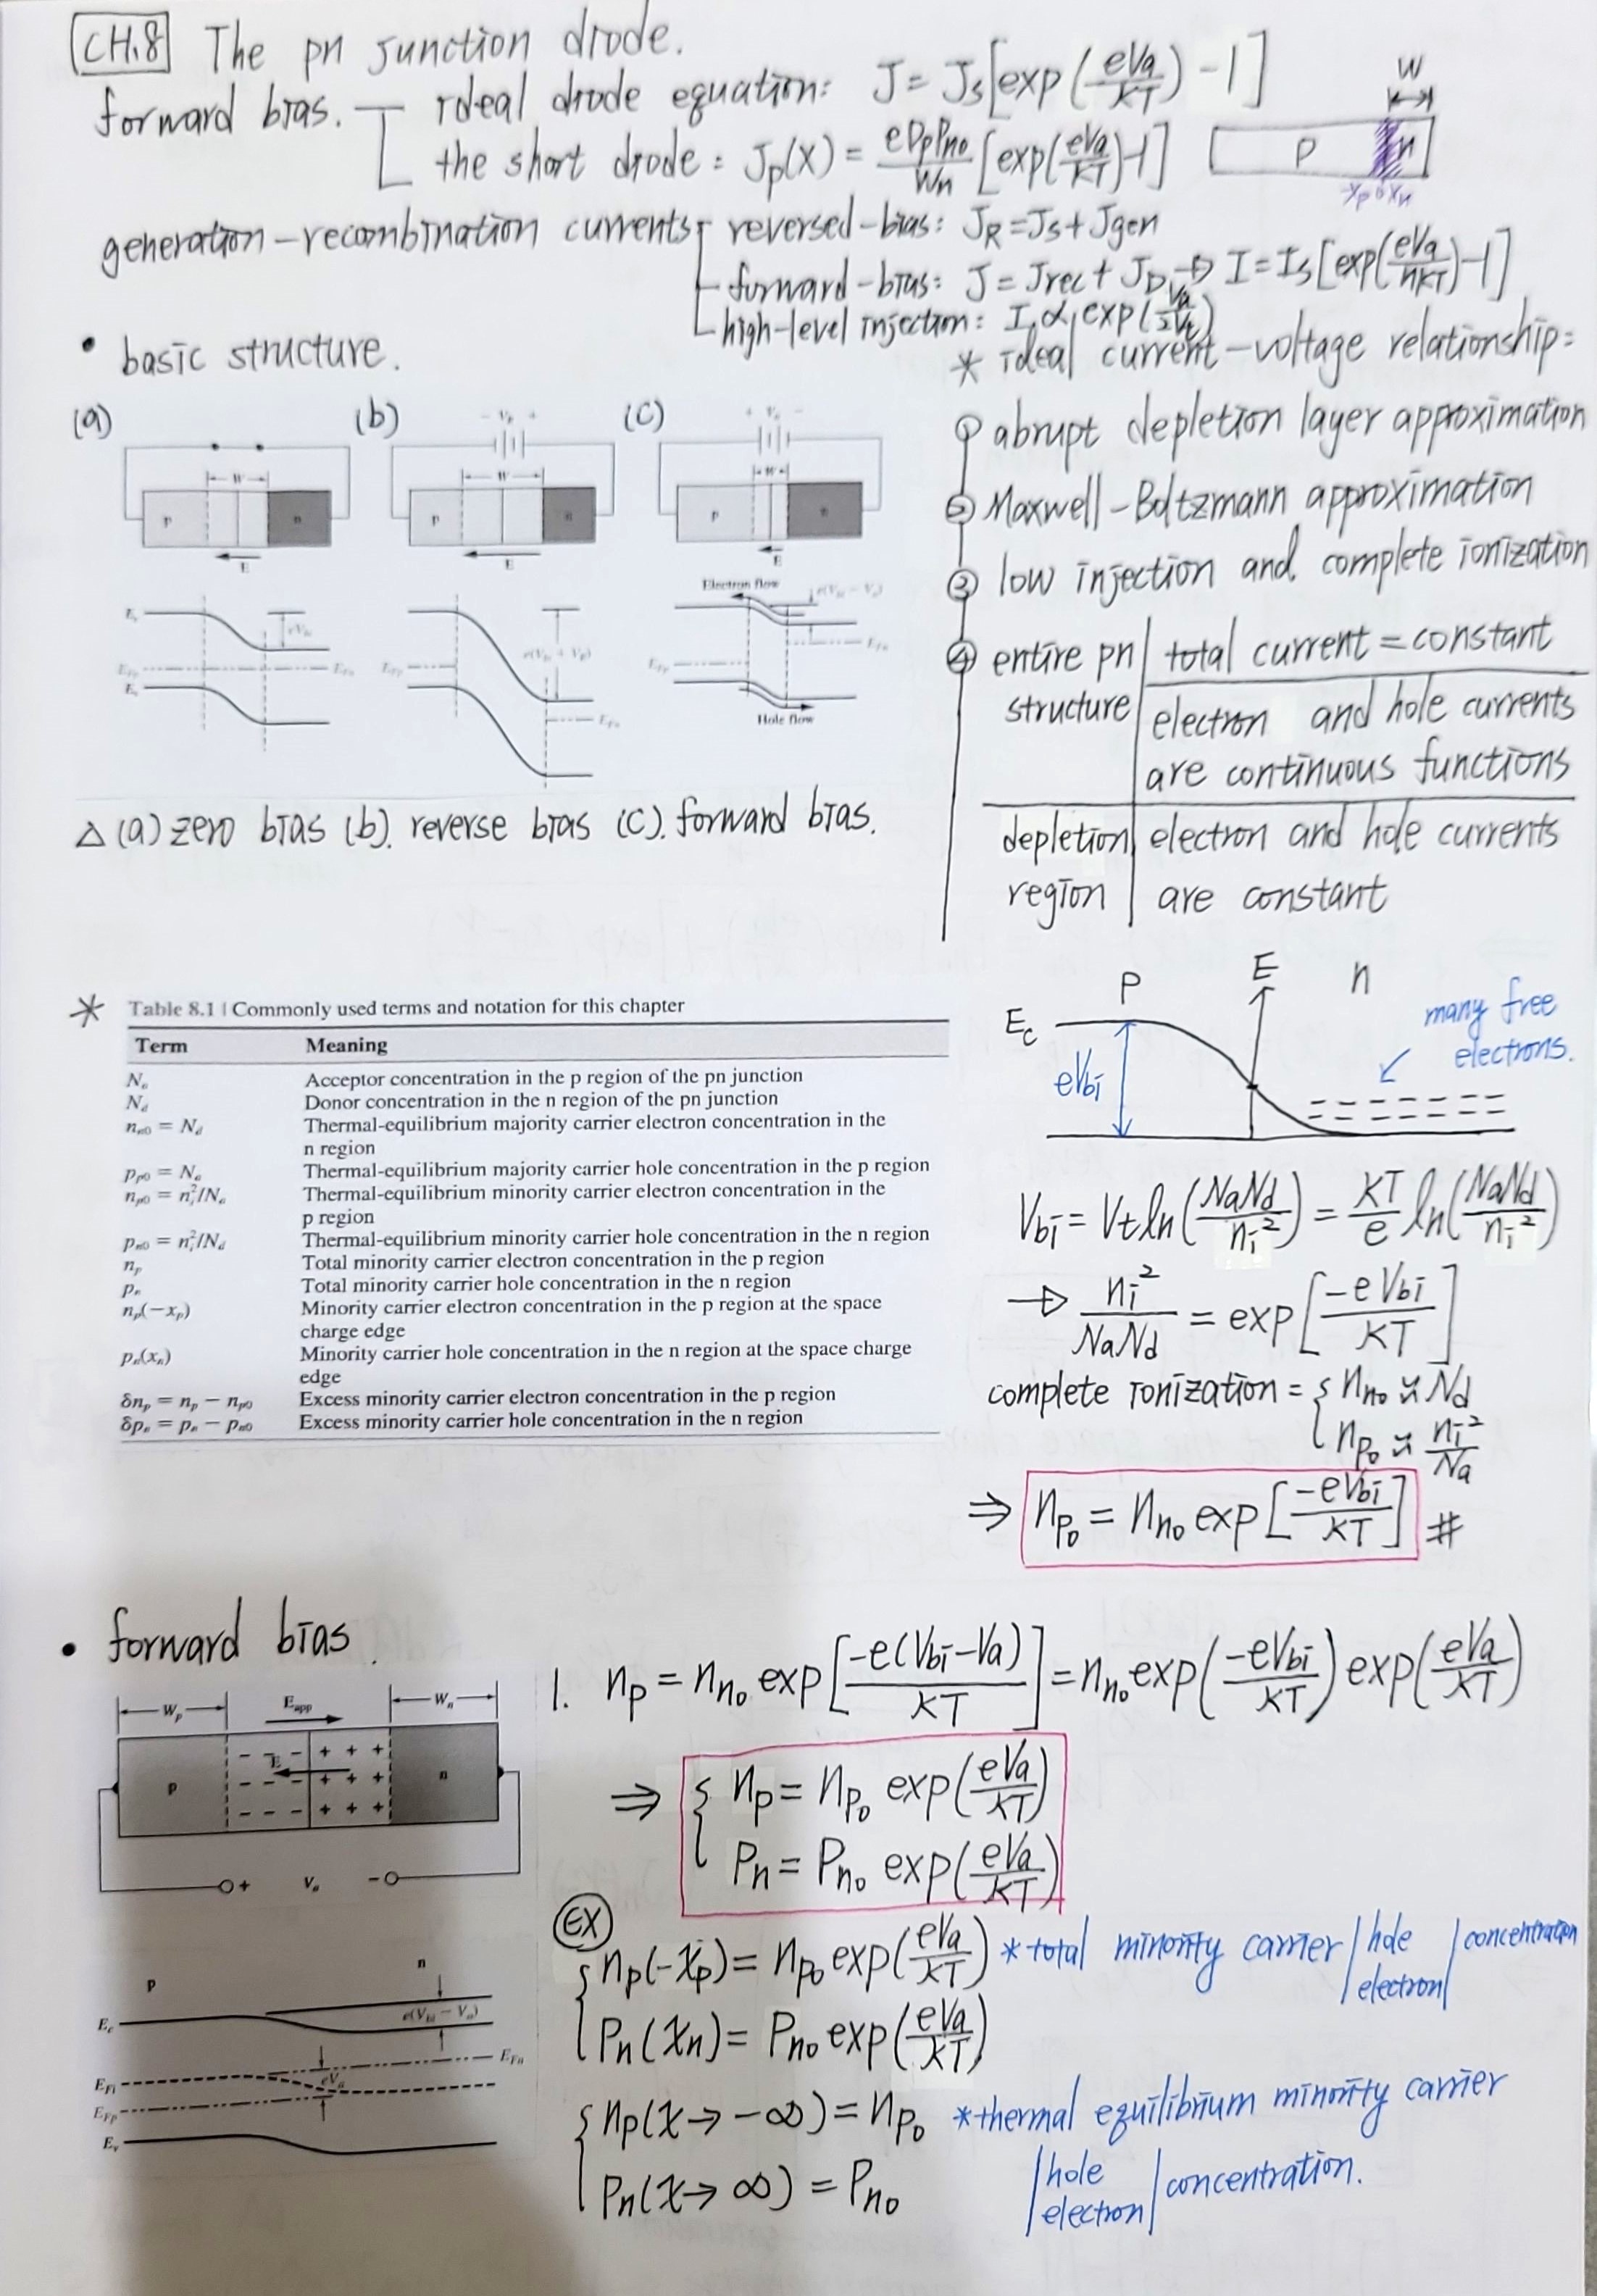 CH.8 The pn junction diode.
forward bias. ideal diode equation: J = Js[exp(eVa/kT) -1]
the short diode: Jp(x) = eDpPno/Wn [exp(eVa/kT)-1]
W
P n
-xp 0 xn
generation-recombination currents reversed-bias: JR = Js + Jgen
forward-bias: J = Jrec + JD → I = Is[exp(eVa/nkT)-1]
high-level injection: I ∝ exp(Va/2Vt)
• basic structure.
* ideal current-voltage relationship:
① abrupt depletion layer approximation
② Maxwell-Boltzmann approximation
③ low injection and complete ionization
④ entire pn structure | total current = constant
electron and hole currents
are continuous functions
depletion region | electron and hole currents
are constant
(a) (b) (c)
W W W
p n p n p n
E E E
Electron flow
Hole flow
△ (a) zero bias (b). reverse bias (c). forward bias.
* Table 8.1 | Commonly used terms and notation for this chapter
Term Meaning
Na Acceptor concentration in the p region of the pn junction
Nd Donor concentration in the n region of the pn junction
nn0 = Nd Thermal-equilibrium majority carrier electron concentration in the
n region
pp0 = Na Thermal-equilibrium majority carrier hole concentration in the p region
np0 = ni²/Na Thermal-equilibrium minority carrier electron concentration in the
p region
pn0 = ni²/Nd Thermal-equilibrium minority carrier hole concentration in the n region
np Total minority carrier electron concentration in the p region
pn Total minority carrier hole concentration in the n region
np(-xp) Minority carrier electron concentration in the p region at the space
charge edge
pn(xn) Minority carrier hole concentration in the n region at the space charge
edge
δnp = np - np0 Excess minority carrier electron concentration in the p region
δpn = pn - pn0 Excess minority carrier hole concentration in the n region
P E n
Ec
eVbi
many free
electrons.
Vbi = Vt ln(NaNd/ni²) = kT/e ln(NaNd/ni²)
→ ni²/NaNd = exp[-eVbi/kT]
complete ionization = { nno ≈ Nd
npo ≈ ni²/Na
⇒ npo = nno exp[-eVbi/kT] #
• forward bias.
Wp Eapp Wn
p E n
+ Va -
p n
Ec e(Vbi - Va)
EFn
EFi eVa
EFp
Ev
1. np = nno exp[-e(Vbi-Va)/kT] = nno exp(-eVbi/kT) exp(eVa/kT)
⇒ { np = npo exp(eVa/kT)
Pn = Pno exp(eVa/kT)
EX
{ np(-xp) = npo exp(eVa/kT) * total minority carrier | hole electron | concentration
Pn(xn) = Pno exp(eVa/kT)
{ np(x→-∞) = npo * thermal equilibrium minority carrier
Pn(x→∞) = Pno | hole electron | concentration.